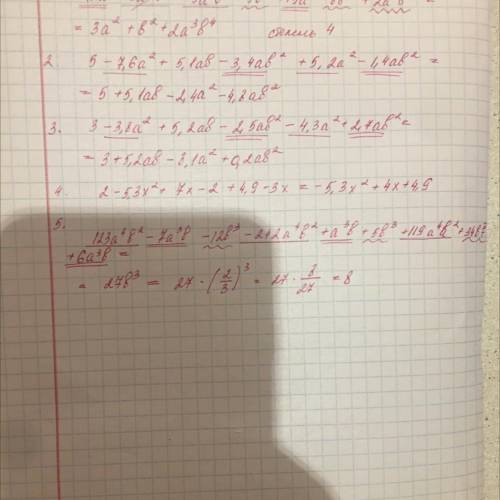 = 3a² + b² + 2a³b⁴ степень 4
2. 5 - 7,6a² + 5,1ab - 3,4ab² + 5,2a² - 1,4ab² =
= 5 + 5,1ab - 2,4a² - 4,8ab²
3. 3 - 3,8a² + 5,2ab - 2,5ab² - 4,3a² + 2,7ab² =
= 3 + 5,2ab - 8,1a² + 0,2ab²
4. 2 - 5,3x² + 7x - 2 + 4,9 - 3x = -5,3x² + 4x + 4,9
5.
123a⁴b² - 7a³b - 12b³ - 242a⁴b² + a³b + 5b³ + 119a⁴b² + 34b³
+ 6a³b =
= 27b³ = 27 · (2/3)³ = 27 · 8/27 = 8